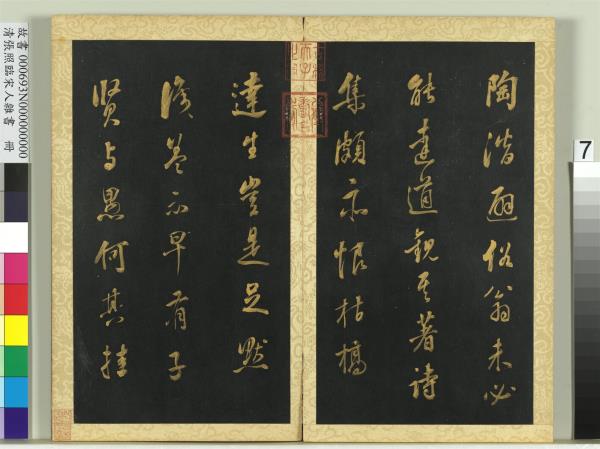 陶潛避俗翁未必
能達道觀其著詩
集頗亦恨枯槁
達生豈是足默
識蓋不早有子
賢与愚何其挂
故書 000693N000000000
清張照臨宋人雜書 冊
7